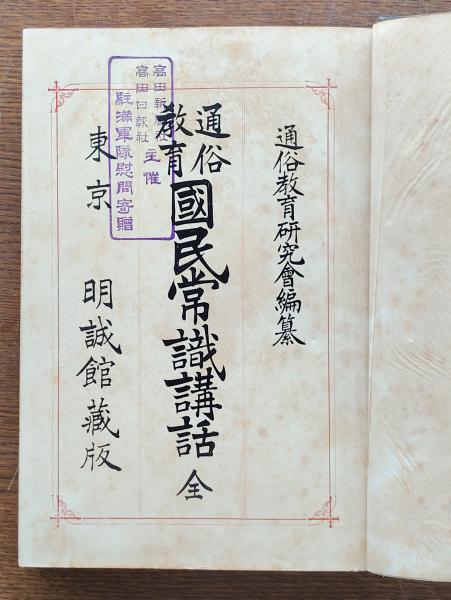 通俗教育研究會編纂
通俗
教育
國民常識講話 全
東京 明誠館藏版
高田新聞社
高田日報社
主催
駐滿軍隊慰問寄贈